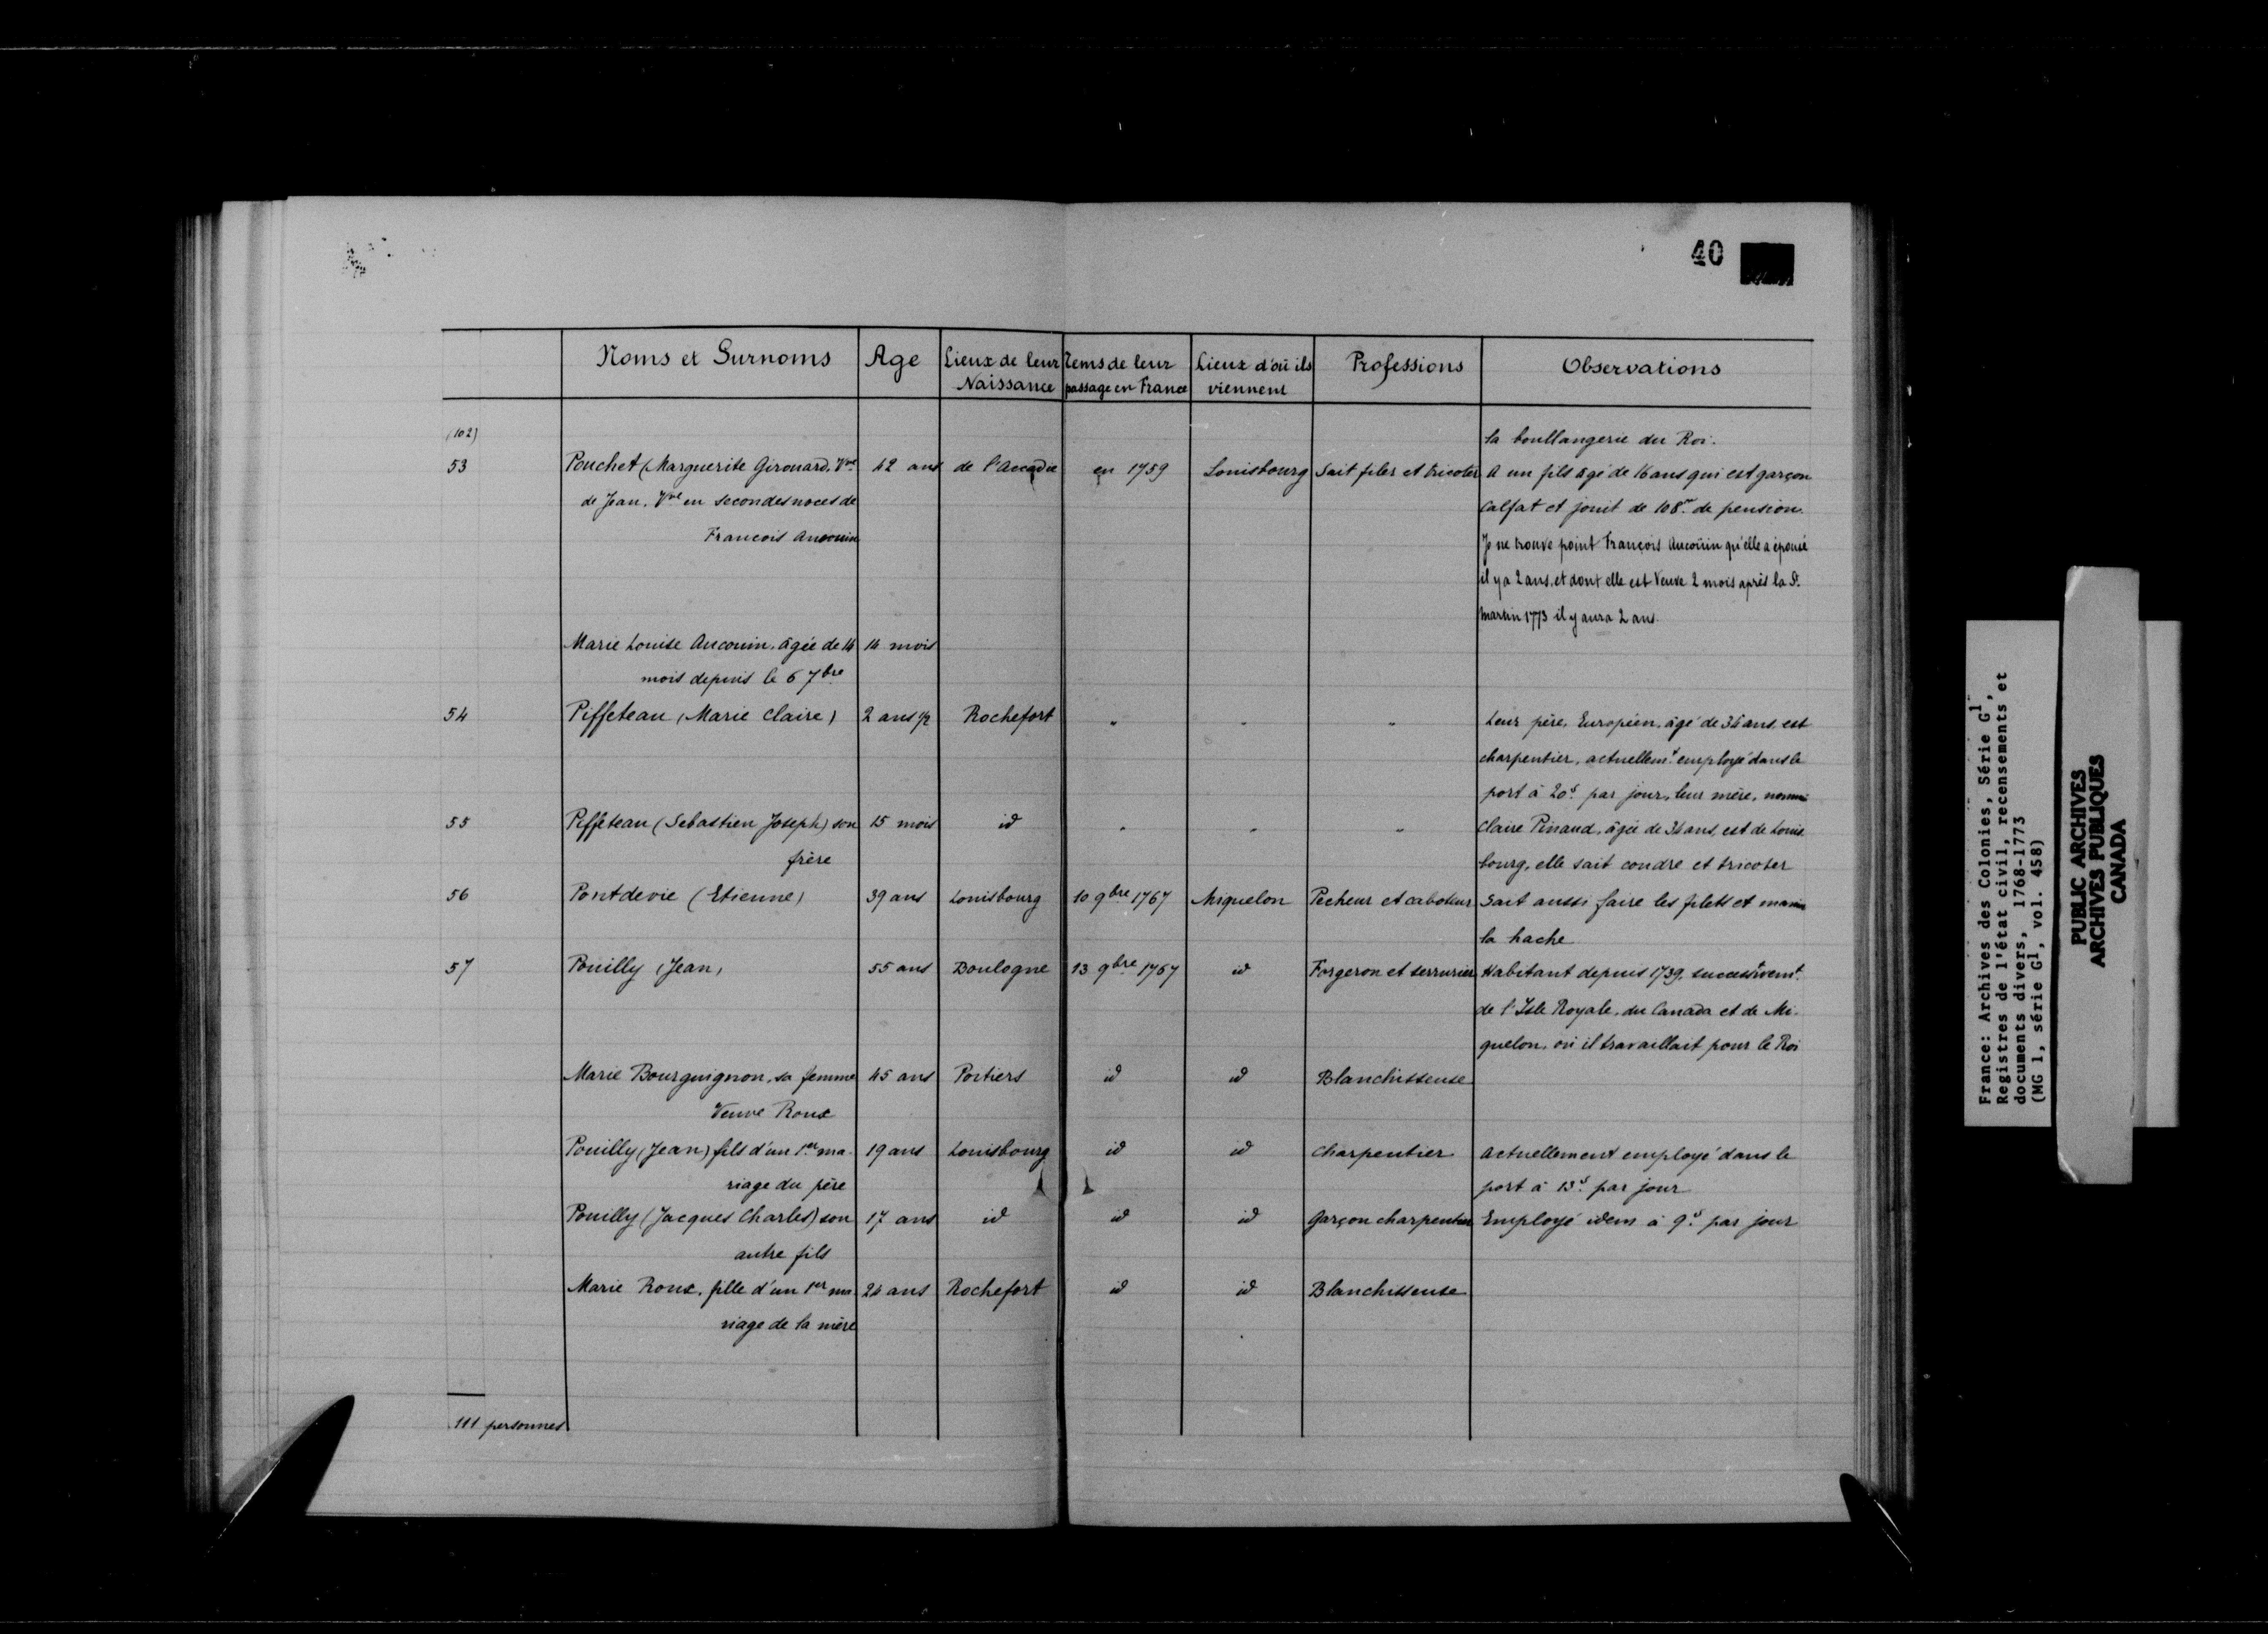 40
Noms et Surnoms | Age | Lieux de leur Naissance | Tems de leur passage en France | Lieux d'où ils viennent | Professions | Observations
(102)
la boullangerie du Roi.
53 | Pouchet (Marguerite Girouard, Vve | 42 ans | de l'Accadie | en 1759 | Louisbourg | Sait filer et tricoter | A un fils agé de 16 ans qui est garçon
de Jean. Vve en secondes noces de | Calfat et jouit de 108.tt de pension.
François Aucouin | Je ne trouve point François Aucoüin qu'elle a épousé
il y a 2 ans, et dont elle est Veuve 2 mois après la St.
Martin 1773 il y aura 2 ans.
Marie Louise Aucouin, âgée de 14 | 14 mois
mois depuis le 6 7bre
54 | Piffeteau (Marie Claire) | 2 ans ½ | Rochefort | " | " | " | Leur père, Européen, âgé de 36 ans, est
charpentier, actuellemt. employé dans le
port à 20s. par jour, leur mère, nommé
55 | Piffeteau (Sebastien Joseph) son | 15 mois | id | " | " | " | Claire Pinaud, âgée de 36 ans, est de Louis
frère | bourg, elle sait coudre et tricoter
56 | Pontdevie (Etienne) | 39 ans | Louisbourg | 10 9bre 1767 | Miquelon | Pecheur et caboteur | Sait aussi faire les filets et manier
la hache
57 | Pouilly (Jean) | 55 ans | Boulogne | 13 9bre 1767 | id | Forgeron et serrurier | Habitant depuis 1739, successivemt.
de l'Isle Royale, du Canada et de Mi-
quelon, où il travaillait pour le Roi
Marie Bourguignon, sa femme | 45 ans | Poitiers | id | id | Blanchisseuse
Veuve Roux
Pouilly (Jean) fils d'un 1er ma- | 19 ans | Louisbourg | id | id | Charpentier | Actuellement employé dans le
riage du père | port à 13s. par jour
Pouilly (Jacques Charles) son | 17 ans | id | id | id | Garçon charpentier | Employé idem à 9s. par jour
autre fils
Marie Roux, fille d'un 1er ma- | 24 ans | Rochefort | id | id | Blanchisseuse
riage de la mère
111 personnes
France: Archives des Colonies, Série G1,
Registres de l'état civil, recensements et
documents divers, 1768-1773
(MG 1, série G1, vol. 458)
PUBLIC ARCHIVES
ARCHIVES PUBLIQUES
CANADA